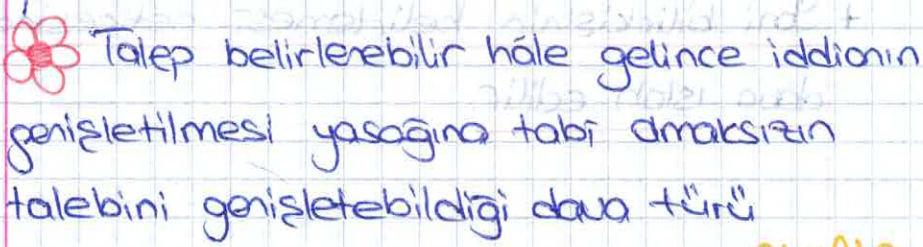 Talep belirlenebilir hâle gelince iddianın
genişletilmesi yasağına tabi olmaksızın
talebini genişletebildiği dava türü